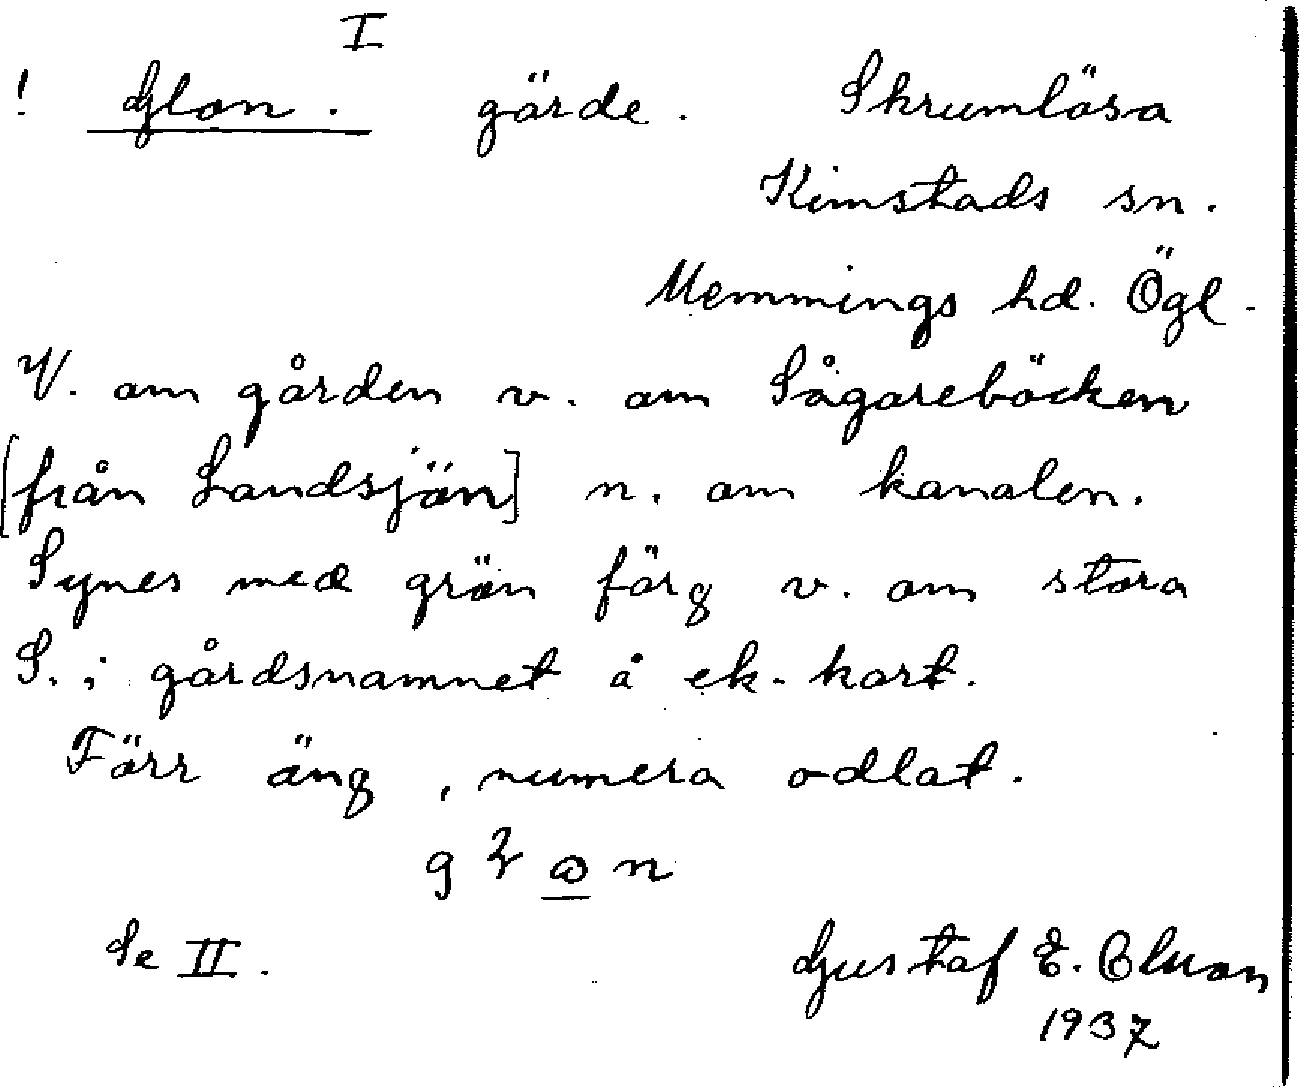 I
! Glon. gärde. Skrumlösa
Kimstads sn.
Memmings hd. Ögl.
V. om gården v. om Sågarebäcken
[från Landsjön] n. om kanalen.
Synes med grön färg v. om stora
S. i gårdsnamnet å ek-kart.
Förr äng, numera odlat.
Se II. Gustaf E.
1937